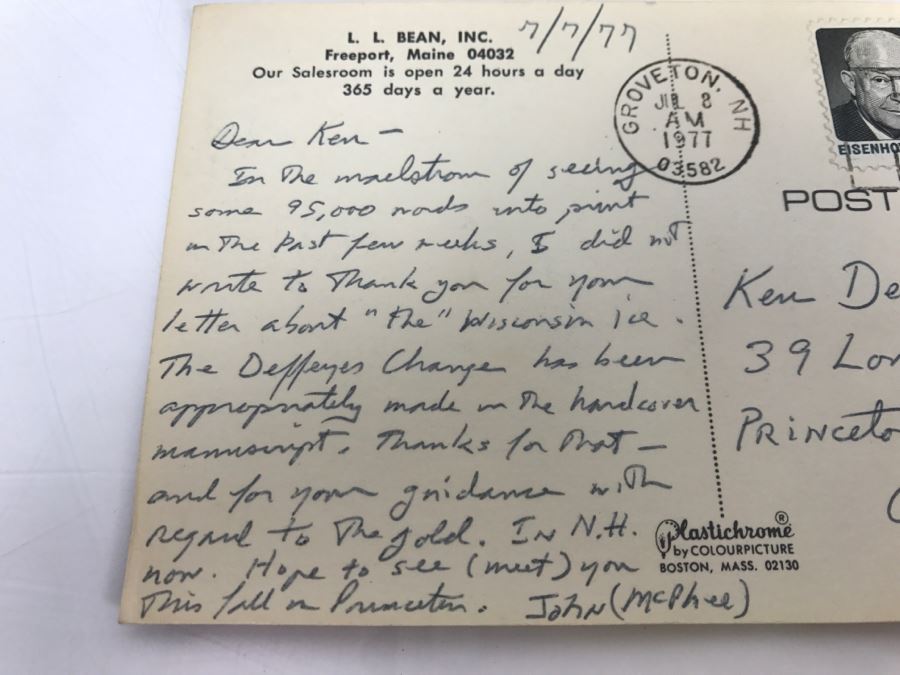 L. L. BEAN, INC.
Freeport, Maine 04032
Our Salesroom is open 24 hours a day
365 days a year.
7/7/77
GROVETON, NH
JUL 8
AM
1977
03582
EISENHO
POST
Dear Ken —
In the maelstrom of seeing
some 95,000 words into print
in the past few weeks, I did not
write to thank you for your
letter about "the" Wisconsin ice.
The Deffeyes Change has been
appropriately made in the hardcover
manuscript. Thanks for that —
and for your guidance with
regard to the gold. In N.H.
now. Hope to see (meet) you
this fall in Princeton. John (McPhee)
Ken De
39 Lon
Princeto
Plastichrome®
by COLOURPICTURE
BOSTON, MASS. 02130